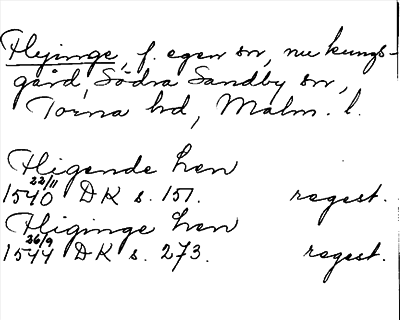 Flyinge, f. egen sn, nu kungs-
gård, Södra Sandby sn,
Torna hd, Malm. l.
Fligende hen
1540 22/11 DK s. 151. regest.
Fliginge hen
1544 26/9 DK s. 273. regest.